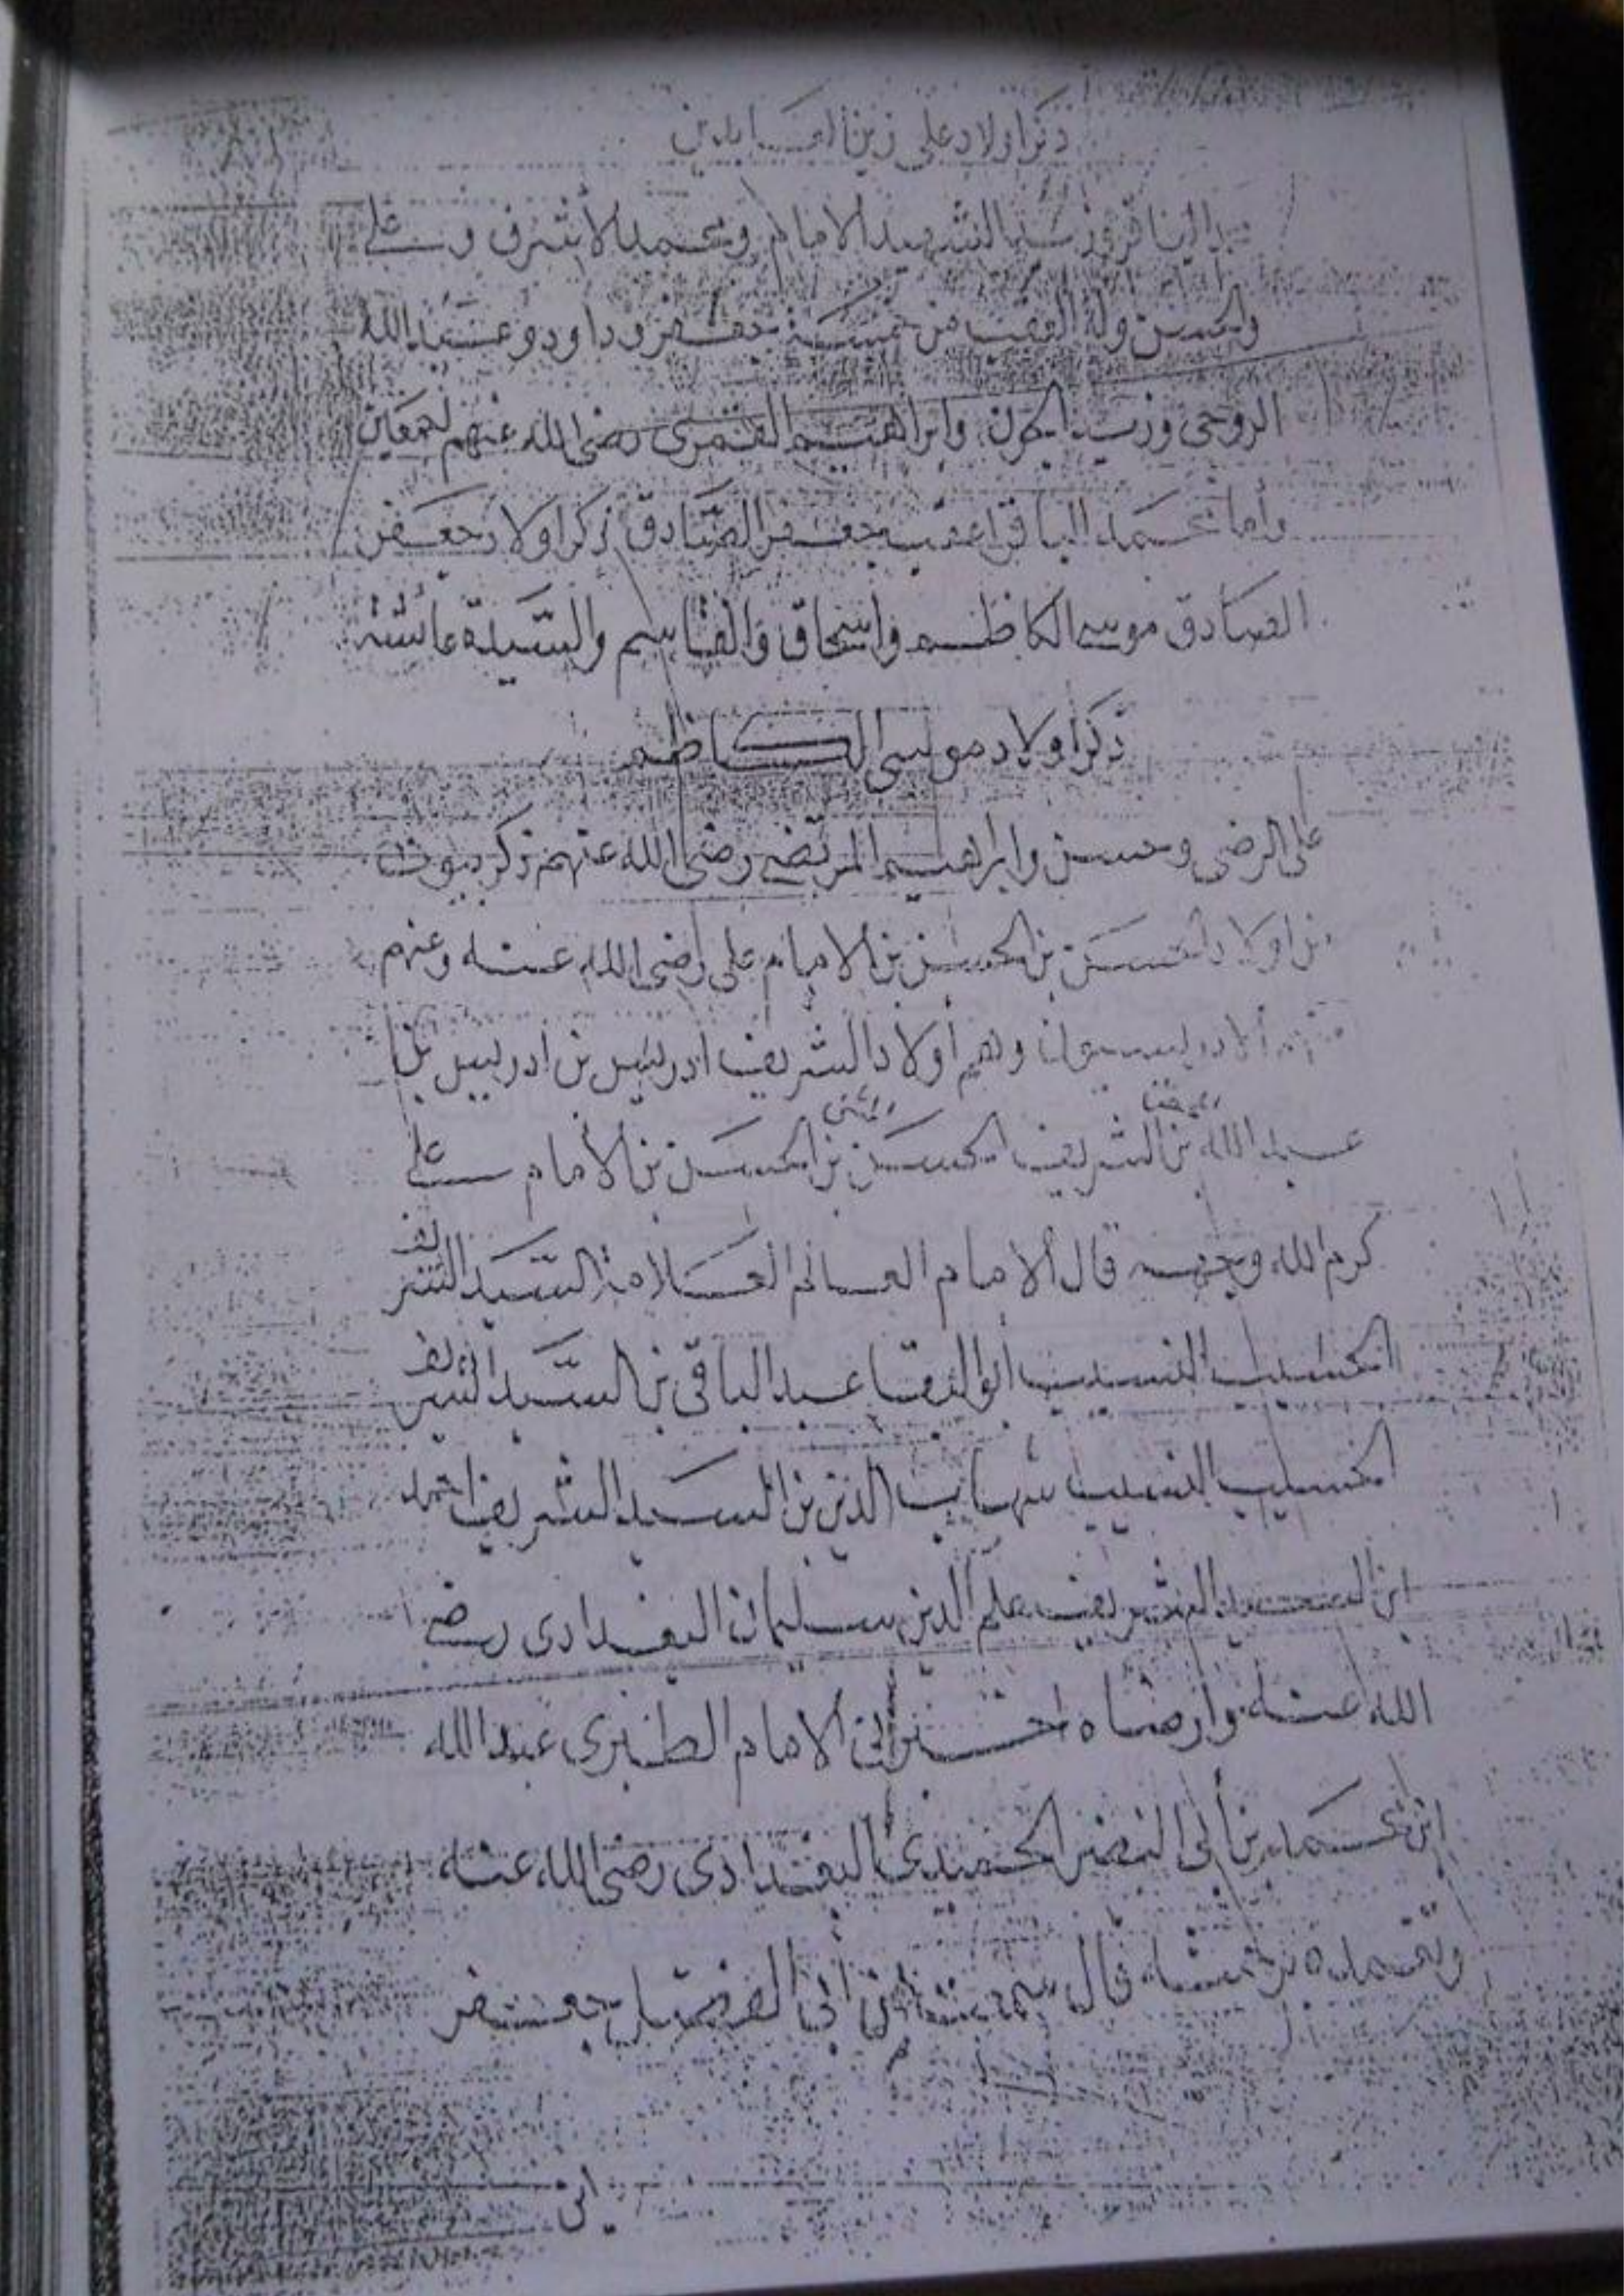 ذكر اولاد على زين العابدين
الباقر وزيد الشهيد الامام ومحمد الأشرف وعلى
والحسن وله العقب من خمسة جعفر وداود وعبد الله
الروحى وزيد الجون وابراهيم القمرى رضى الله عنهم اجمعين
وأما محمد الباقر اعقب جعفر الصادق ذكر اولاد جعفر
الصادق موسى الكاظم واسحاق والقاسم والسيدة عائشة
ذكر اولاد موسى الكاظم
على الرضى وحسن وابراهيم المرتضى رضى الله عنهم ذكر بيوت
من اولاد الحسن بن الحسن بن الامام على رضى الله عنه وعنهم
الادريسيون وهم أولاد الشريف ادريس بن ادريس بن
عبد الله بن الشريف الحسن المثنى بن الحسن بن الأمام على
كرم الله وجهه قال الامام العالم العلامة السيد الشريف
الحسيب النسيب أبو البقا عبد الباقى بن السيد الشريف
الحسيب النسيب شهاب الدين بن السيد الشريف احمد
ابن السيد الشريف علم الدين سليمان البغدادى رضى
الله عنه وارضاه اخبرنى الامام الطبرى عبد الله
ابن محمد بن أبى النصر الحميدى البغدادى رضى الله عنه
وتغمده برحمته قال سمعت من أبى الفضل جعفر
ابن